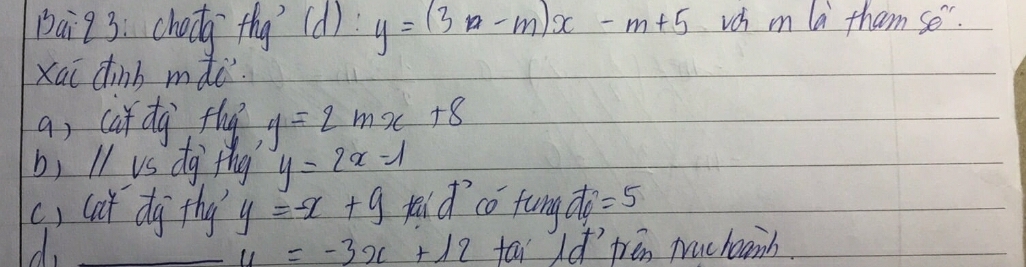 Bài 23: cho đg thg' (d): y = (3 - m)x - m + 5 với m là tham số.
xác định m để:
a, cắt đg thg' y = 2mx + 8
b, // vs đg thg' y = 2x - 1
c, cắt đg thg' y = -x + 9 tại đ' có tung độ = 5
d, y = -3x + 12 tại 1đ' trên trục hoành.